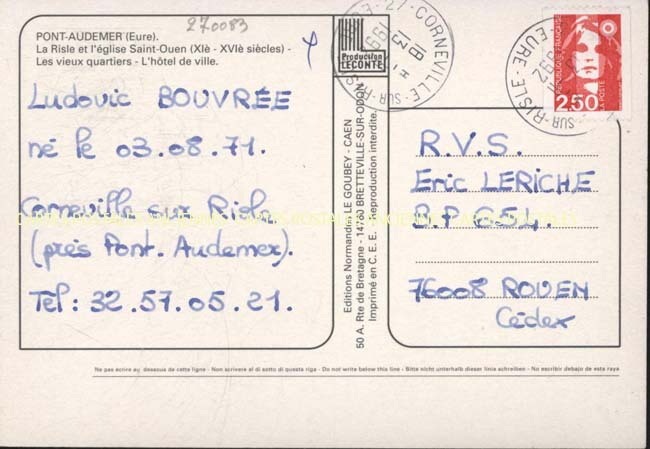 270083
PONT-AUDEMER (Eure).
La Risle et l'église Saint-Ouen (XIè - XVIè siècles) -
Les vieux quartiers - L'hôtel de ville.
Ludovic BOUVRÉE
né le 03.08.71.
Corneville sur Risle
(près Pont. Audemer).
Tel: 32.57.05.21.
Production
LECONTE
Editions Normandes LE GOUBEY - CAEN
50 A. Rte de Bretagne - 14760 BRETTEVILLE-SUR-ODON
Imprimé en C. E. E. - Reproduction interdite.
27-CORNEVILLE-SUR-RISLE
18 H
EURE
SUR-RISLE
REPUBLIQUE FRANÇAISE
2,50
LA POSTE
R.V.S.
Eric LERICHE
B.P 654.
76008 ROUEN
Cédex
Ne pas écrire au dessous de cette ligne - Non scrivere al di sotto di questa riga - Do not write below this line - Bitte nicht unterhalb dieser linie schreiben - No escribir debajo de esta raya